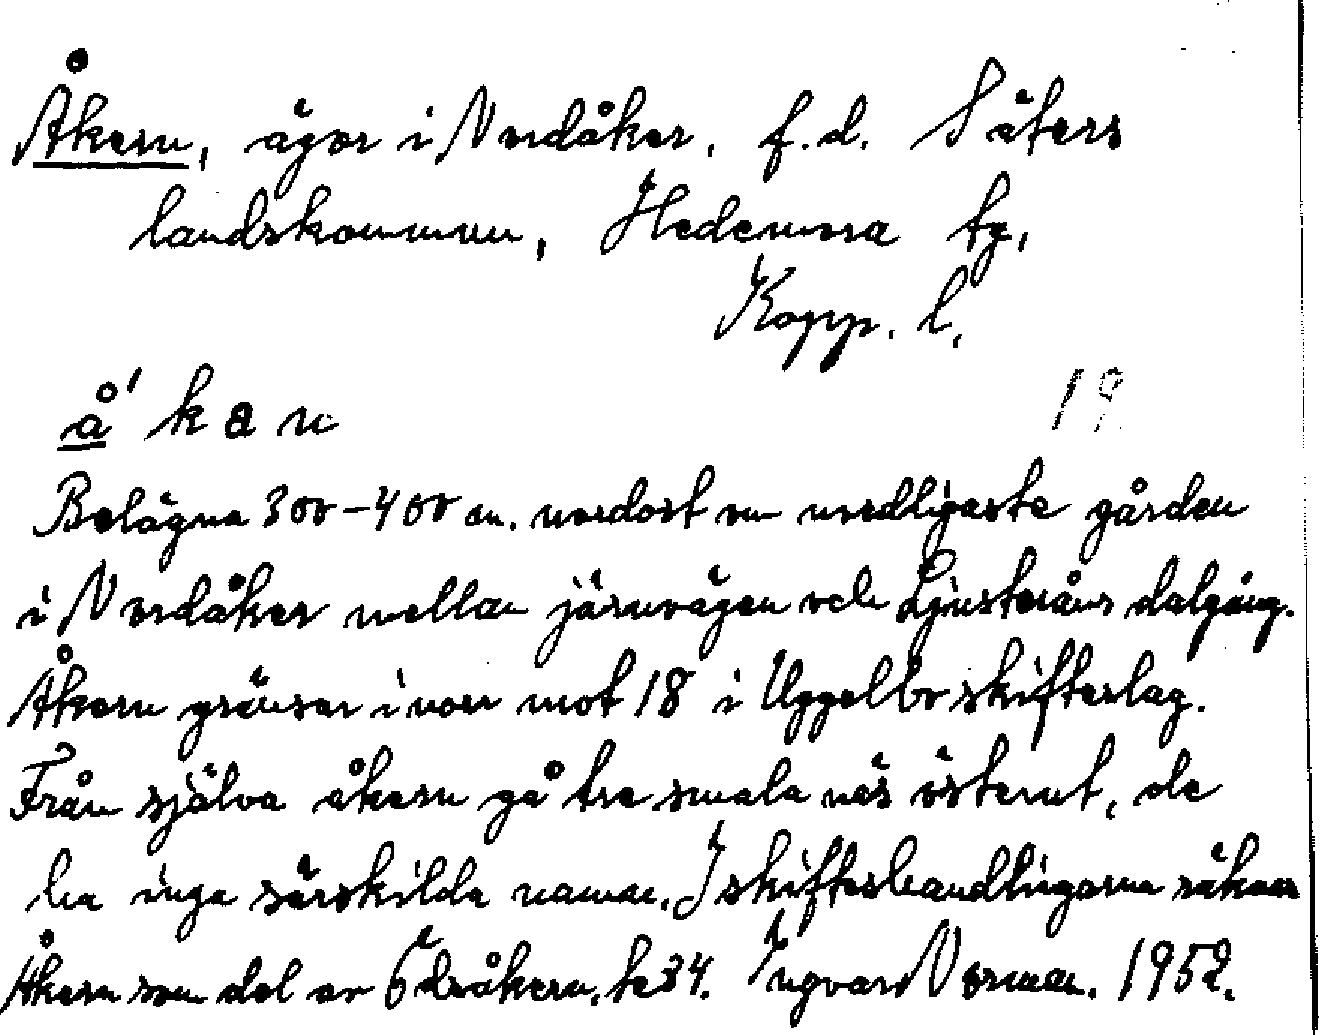 Åkern, ägor i Nordåker, f.d. Säters
landskommun, Hedemora tg,
Kopp. l.
å' k a n
19
Belägna 300-400 m. nordost om nordligaste gården
i Nordåker mellan järnvägen och Ljusteråns dalgång.
Åkern gränsar i norr mot 18 i Uggelbo skifteslag.
Från själva åkern gå tre smala näs österut, de
ha inga särskilda namn. I skifteshandlingarna räknas
Åkern som del av Ödsåkern, 34. Ingvar Norman. 1952.